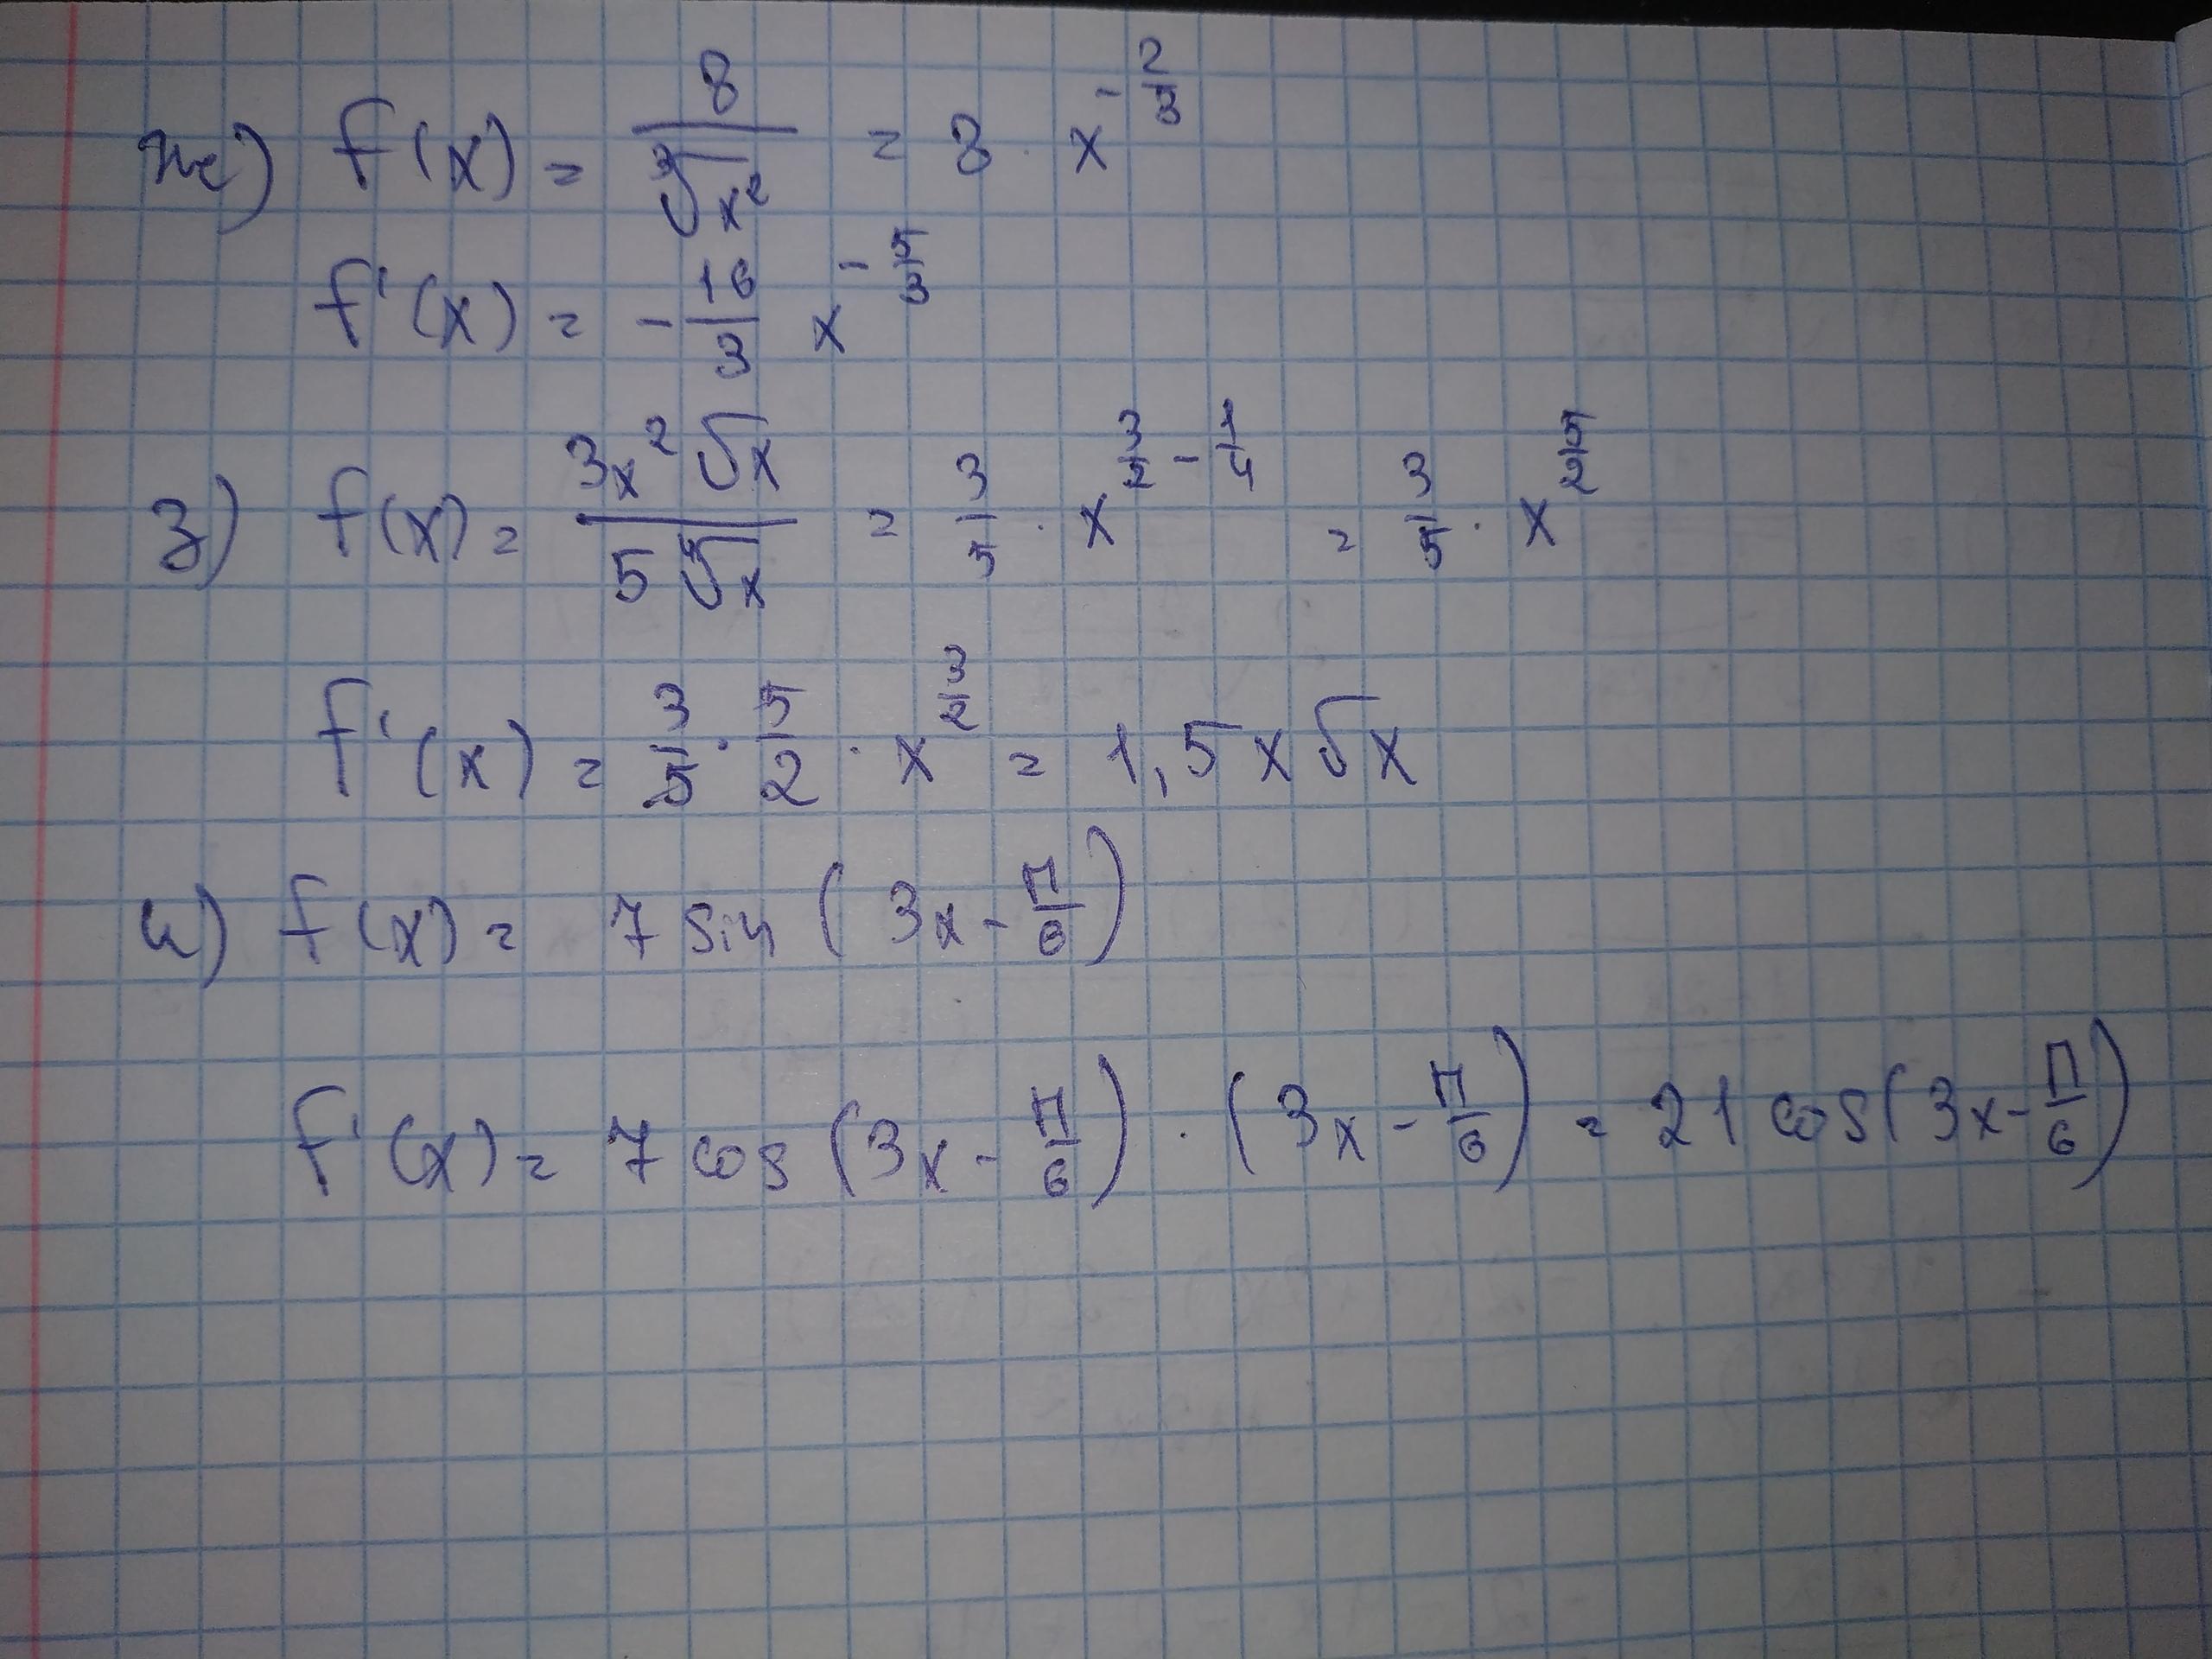 ж) f(x) = 8/∛x² = 8 · x^(-2/3)
f'(x) = -16/3 x^(-5/3)
з) f(x) = 3x²√x / 5∜x = 3/5 · x^(3/2 - 1/4) = 3/5 · x^(5/2)
f'(x) = 3/5 · 5/2 · x^(3/2) = 1,5x√x
и) f(x) = 7 sin (3x - П/6)
f'(x) = 7 cos (3x - П/6) · (3x - П/6) = 21 cos(3x - П/6)